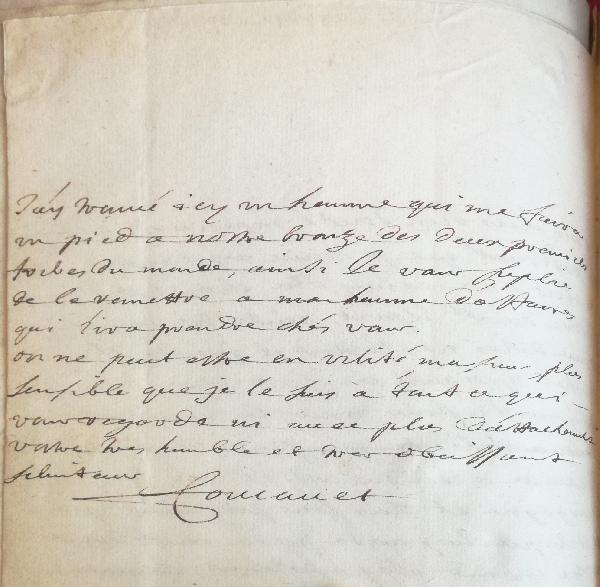 J'ay trouvé icy un homme qui me faira
un pied a nostre bronze des deux premiers
du monde, ainsi je vous suplie
de le remettre a mon homme
qui l'ira prendre chés vous.
on ne peut estre en verité plus
sensible que je le suis a tout ce qui
vous regarde ni avec plus d'attachement
vostre tres humble et tres obeissant
serviteur